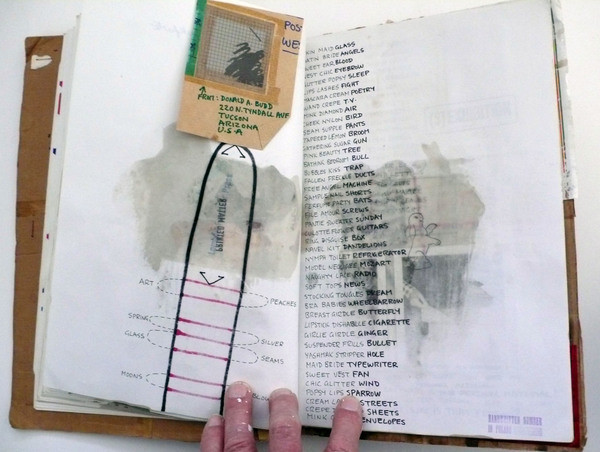 POS
WE
FROM: DONALD A. BUDD
220 N. TYNDALL AVE
TUCSON
ARIZONA
U.S.A
PRINTED MATTER
ART
PEACHES
SPRING
GLASS
SILVER
SEAMS
MOONS
MAID GLASS
SATIN BRIDE ANGELS
SWEET EAR BLOOD
CHIC EYEBROW
GLITTER POPSY SLEEP
LIPS LASHES FIGHT
MASCARA CREAM POETRY
CREPE T.V.
MINK DIAMOND AIR
CHEEK NYLON BIRD
SEAM SUPPLE PANTS
TAPERED LEMON BROOM
SUGAR GUN
PINK BEAUTY TREE
BATHING BEDROOM BULL
BUBBLES KISS TRAP
FALLEN FRECKLE DUCTS
ANGEL MACHINE
SAMPLE NAIL SHORTS
PERFUME PARTY BATS
SCREWS
SWEATER SUNDAY
FLOWER GUITARS
DISGUISE BOX
NAVEL KIT DANDELIONS
NYMPH TOILET REFRIGERATOR
MODEL MOZART
NAUGHTY LACE RADIO
SOFT TOPS NEWS
STOCKING TONGUES DREAM
BABIES WHEELBARROW
BREAST GIRDLE BUTTERFLY
LIPSTICK DISHABILLE CIGARETTE
GIRLIE GIRDLE GINGER
SUSPENDER FRILLS BULLET
YASHMAK STRIPPER HOLE
MAID BRIDE TYPEWRITER
SWEET VEST FAN
CHIC GLITTER WIND
POPSY LIPS SPARROW
CREAM STREETS
CREPE SHEETS
MINK ENVELOPES